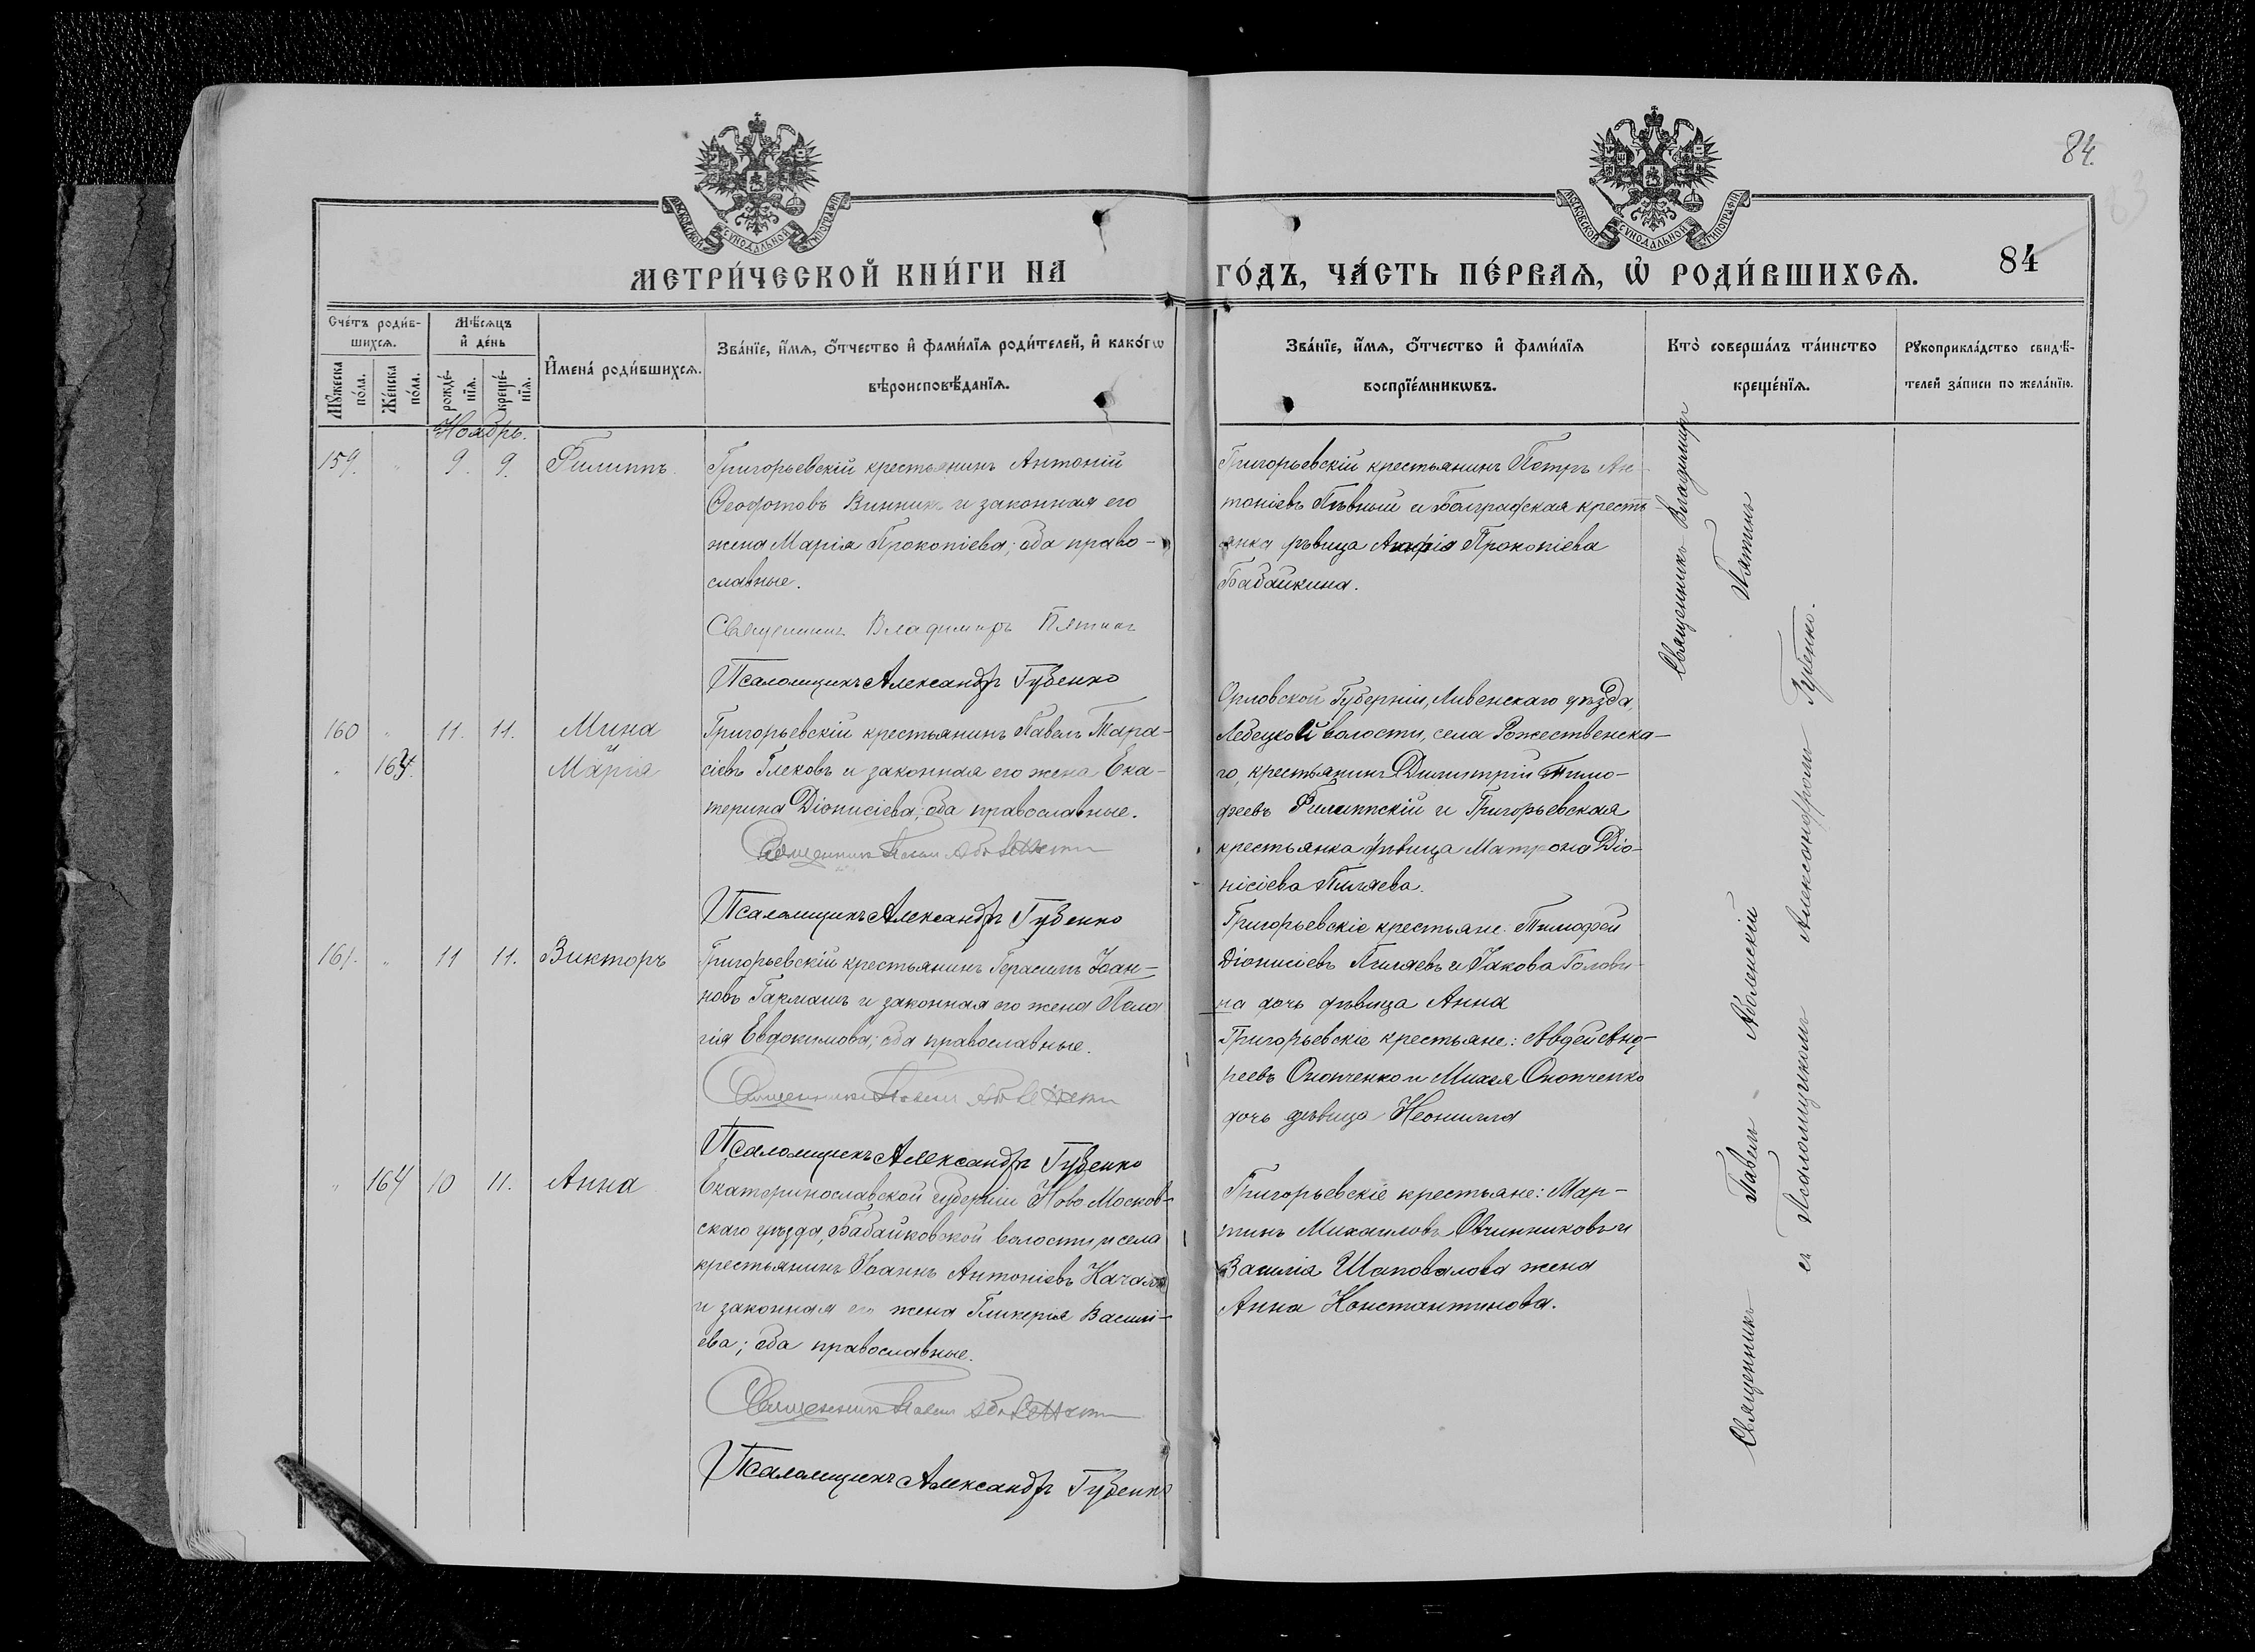 84.
84
МЕТРИ́ЧЕСКОЙ КНИ́ГИ НА
ГО́ДЪ, ЧА́СТЬ ПЕ́РВАЯ, Ѡ РОДИ́ВШИХСЯ.
МОСКОВСКОЙ СѴНОДАЛЬНОЙ ТИПОГРАФІИ
МОСКОВСКОЙ СѴНОДАЛЬНОЙ ТИПОГРАФІИ
Сче́тъ роди́вшихся.
Му́жеска по́ла.
Же́нска по́ла.
Мѣ́сяцъ и де́нь
рожде́нїя.
креще́нїя.
Имена́ роди́вшихся.
Зва́нїе, и́мя, о́тчество и фами́лїя роди́телей, и како́гѡ
вѣроисповѣ́данїя.
Зва́нїе, и́мя, о́тчество и фами́лїя
воспрїе́мникѡвъ.
Кто̀ соверша́лъ та́инство
креще́нїя.
Рукоприкла́дство свидѣ́-
телей за́писи по жела́нїю.
Ноябрь.
159. " 9. 9. Филиппъ
Григорьевскій крестьянинъ Антоній
Ѳеофотовъ Винник и законная его
жена Марія Прокопіева; оба право-
славные.
Священникъ Владимиръ Пятинъ
Псаломщикъ Александръ Губенко
Григорьевскій крестьянинъ Петръ Ан-
тоніевъ Пѣвный и крестья
янка дѣвица Агафія Прокопіева
Бабайкина.
Священникъ Владимир
Пятинъ
160 " 11. 11. Мина
" 163. Марія
Григорьевскій крестьянинъ Павелъ Тара-
сіевъ Глековъ и законная его жена Ека-
терина Діонисіева; оба православные.
Священникъ Павелъ
Псаломщикъ Александръ Губенко
Орловской Губерніи, Ливенскаго уѣзда,
волости, села Рожественска-
го, крестьянинъ Димитрій Тимо-
феевъ Филиппскій и Григорьевская
крестьянка дѣвица Матрона Діо-
нісіева Пигаева.
161. " 11 11. Викторъ
Григорьевскій крестьянинъ Герасимъ Іоан-
новъ Гакмашъ и законная его жена Пела
гія Евдокимова; оба православные.
Священникъ Павелъ
Псаломщикъ Александръ Губенко
Григорьевскіе крестьяне: Тимофей
Діонисіевъ Пигаевъ и Іакова Голови-
на дочь дѣвица Анна
Григорьевскіе крестьяне: Авдей Анд-
реевъ Онопченко и Онопченко
дочь дѣвица Неонилла
" 164 10 11. Анна
Екатеринославской губерніи Ново Москов-
скаго уѣзда, Бабайковской волости и села
крестьянинъ Іоаннъ Антоніевъ
и законная его жена Гликерія Васил-
ева; оба православные.
Священникъ Павелъ
Псаломщикъ Александръ Губенко
Григорьевскіе крестьяне: Мар-
тинъ Михаиловъ Овчинниковъ и
Василія Шаповалова жена
Анна Константинова.
Священникъ Павелъ
съ Псаломщикомъ Александромъ Губенко.